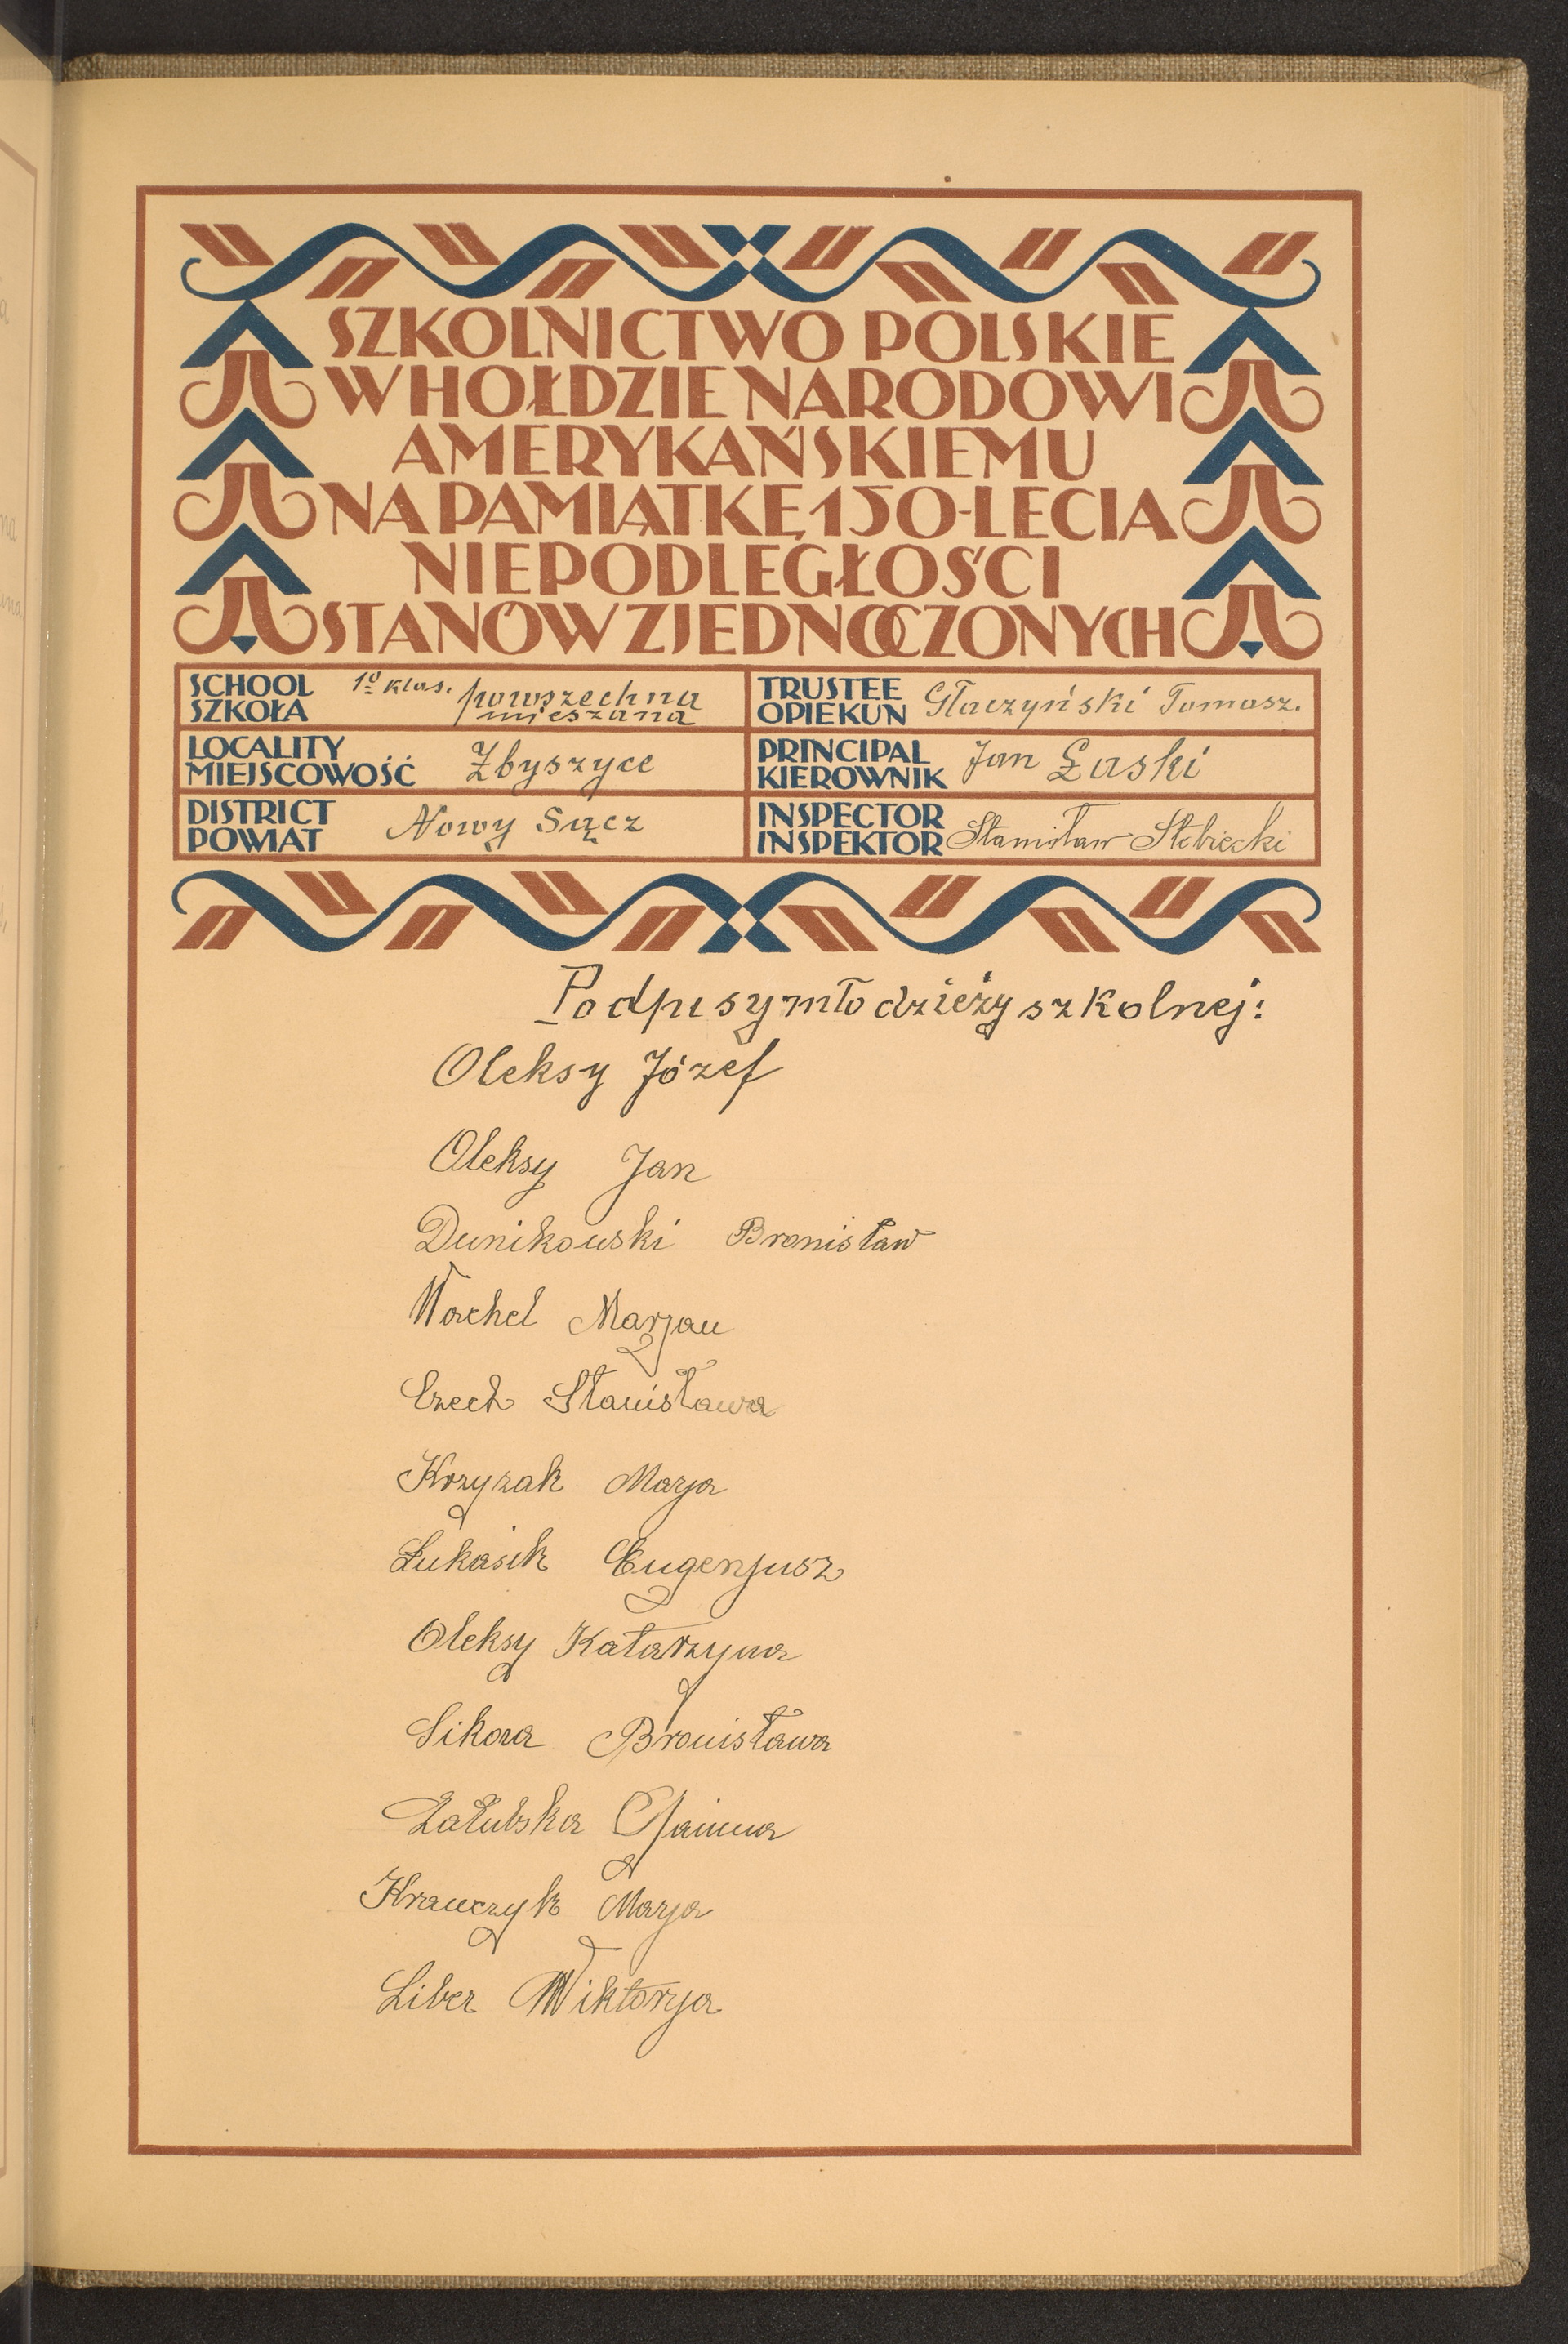 SZKOLNICTWO POLSKIE
W HOŁDZIE NARODOWI
AMERYKAŃSKIEMU
NA PAMIĄTKĘ 150-LECIA
NIEPODLEGŁOŚCI
STANÓW ZJEDNOCZONYCH
SCHOOL
SZKOŁA
1º klas. powszechna
mieszana
TRUSTEE
OPIEKUN
Głaczyński Tomasz.
LOCALITY
MIEJSCOWOŚĆ
Zbyszyce
PRINCIPAL
KIEROWNIK
Jan Łaski
DISTRICT
POWIAT
Nowy Sącz
INSPECTOR
INSPEKTOR
Stanisław
Podpisy młodzieży szkolnej:
Oleksy Józef
Oleksy Jan
Dunikowski Bronisław
Wachel Marjan
Czech Stanisława
Krzyzak Marja
Łukasik Eugenjusz
Oleksy Katarzyna
Sikora Bronisława
Załubska Janina
Krawczyk Marja
Liber Wiktorja